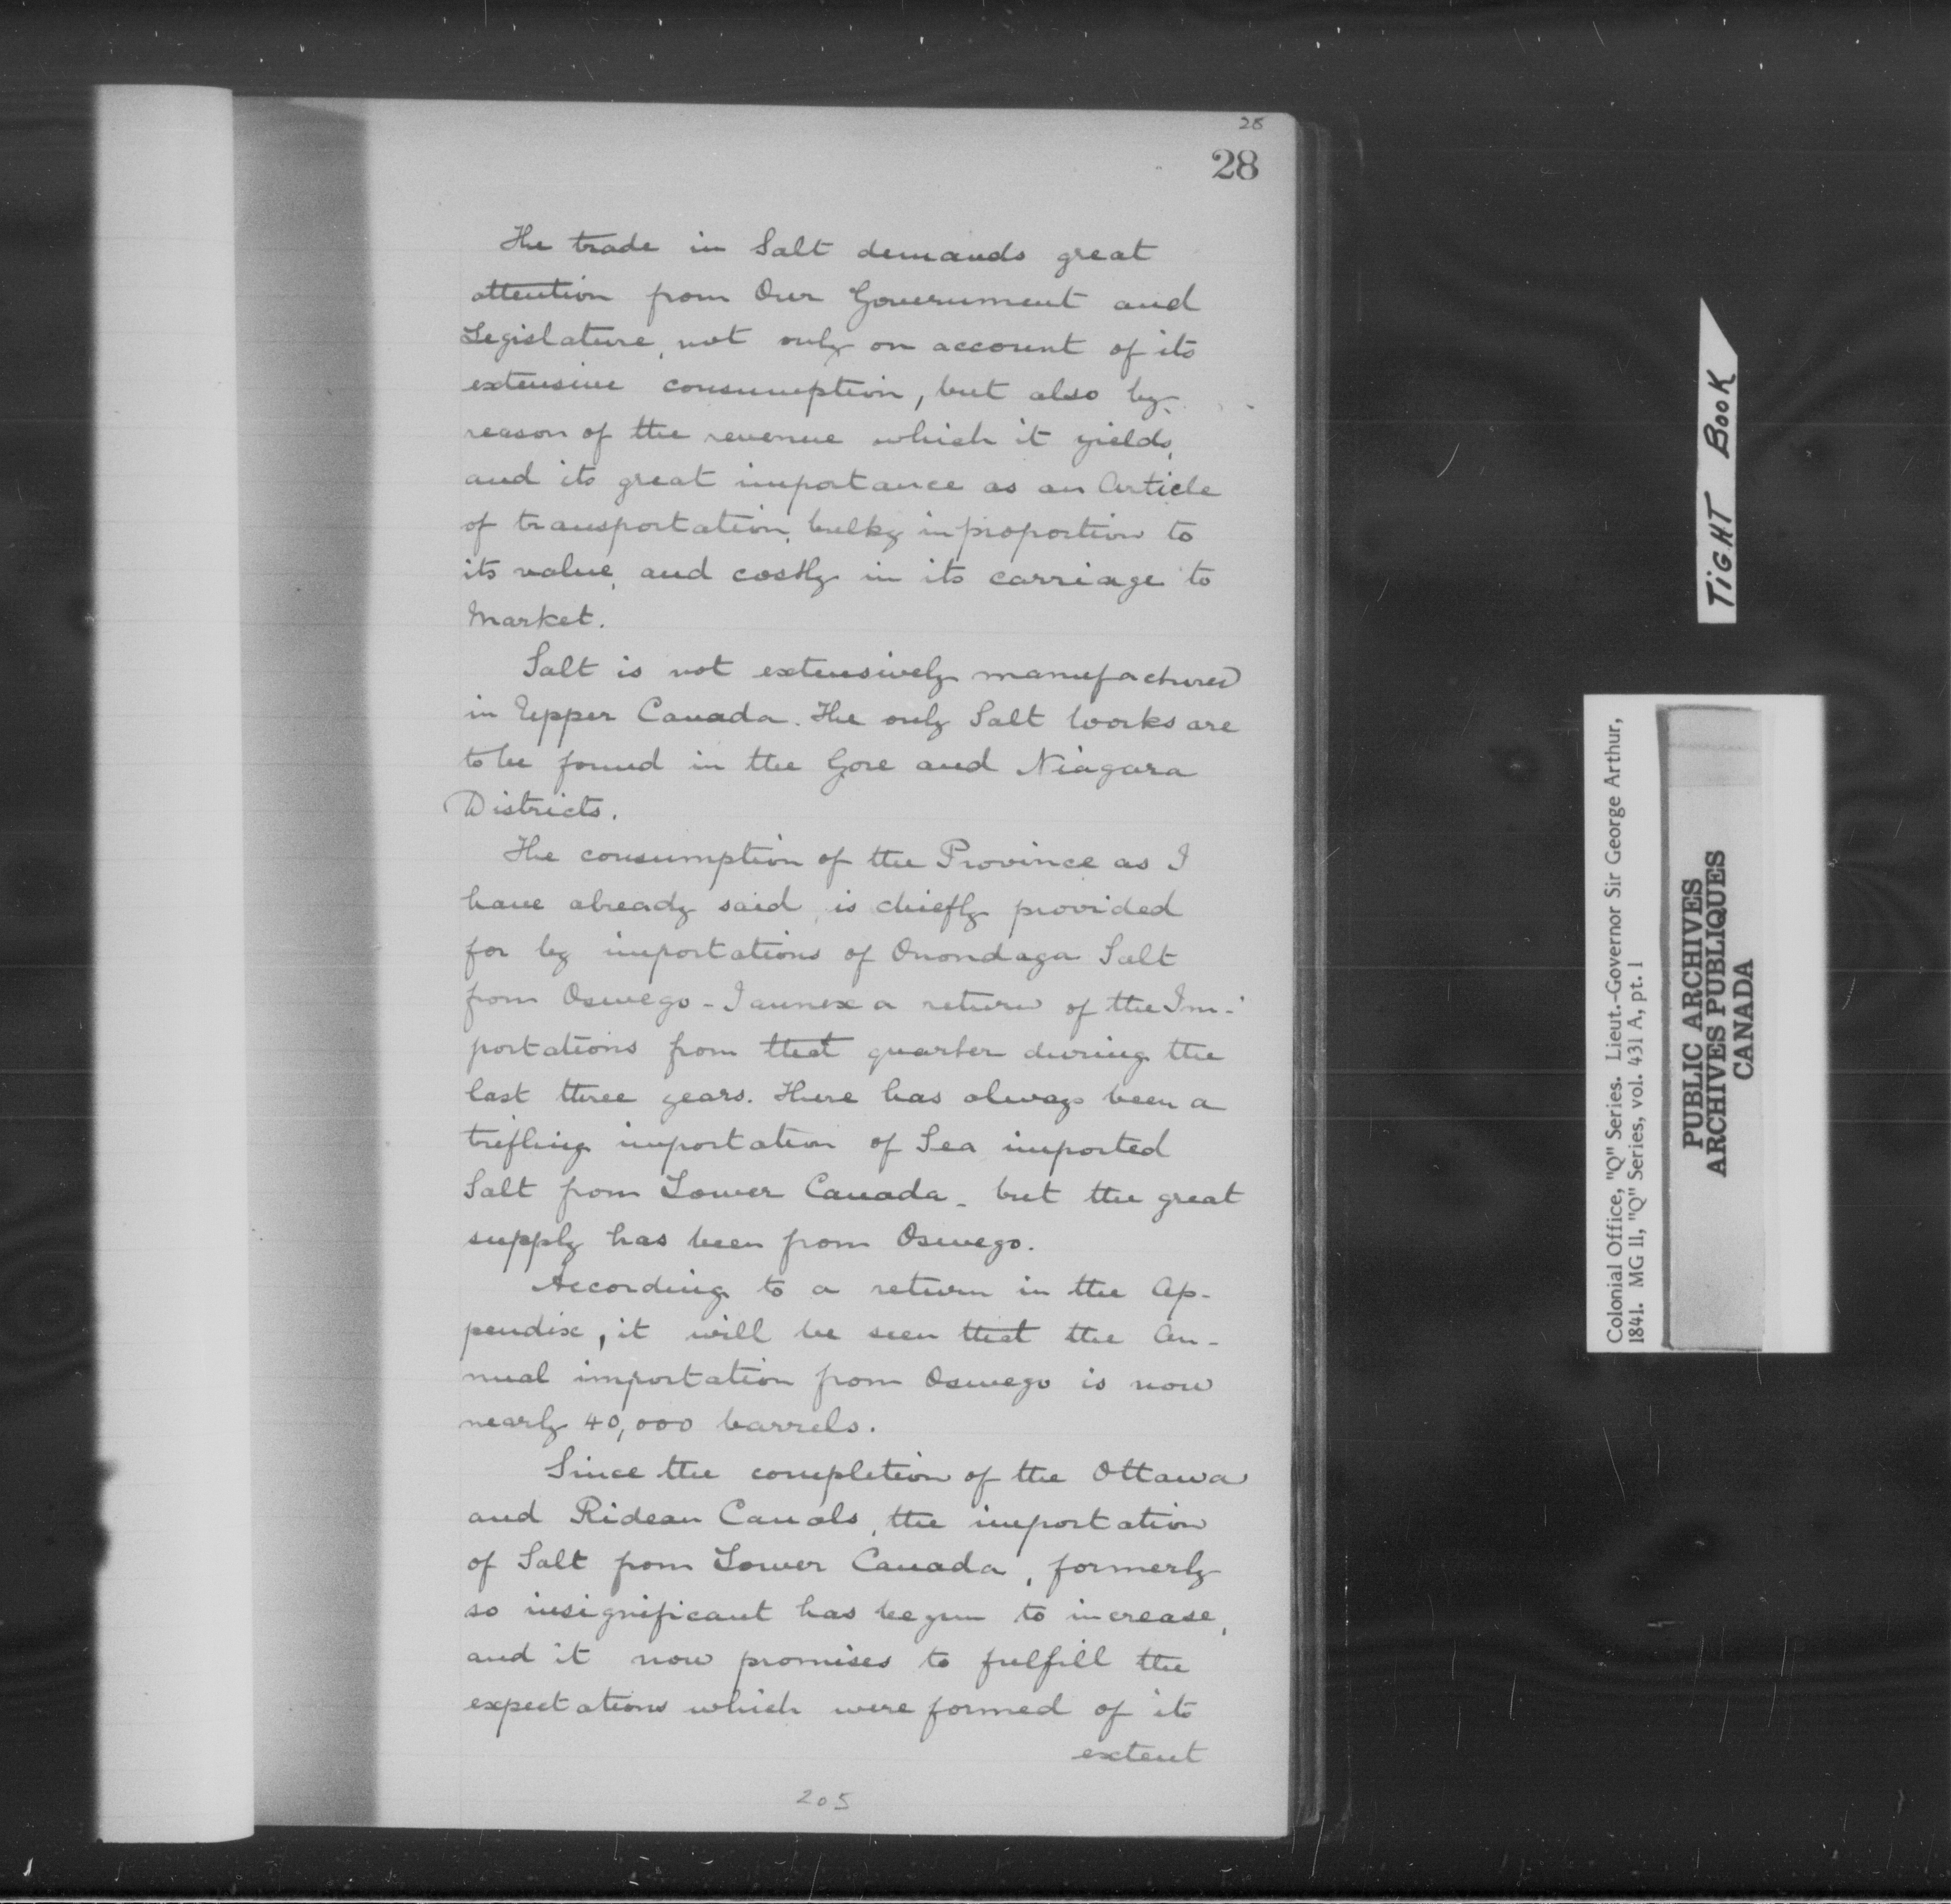 28
28
The trade in Salt demands great
attention from Our Government and
Legislature, not only on account of its
extensive consumption, but also by
reason of the revenue which it yields,
and its great importance as an Article
of transportation, bulky in proportion to
its value, and costly in its carriage to
Market.
Salt is not extensively manufactured
in Upper Canada. The only Salt Works are
to be found in the Gore and Niagara
Districts.
The consumption of the Province as I
have already said, is chiefly provided
for by importations of Onondaga Salt
from Oswego - I annex a return of the Im-
portations from that quarter during the
last three years. There has always been a
trifling importation of Sea imported
Salt from Lower Canada - but the great
supply has been from Oswego.
According to a return in the Ap-
pendix, it will be seen that the An-
nual importation from Oswego is now
nearly 40,000 barrels.
Since the completion of the Ottawa
and Rideau Canals, the importation
of Salt from Lower Canada, formerly
so insignificant has begun to increase,
and it now promises to fulfill the
expectations which were formed of its
extent
205
TIGHT BOOK
Colonial Office, "Q" Series. Lieut.-Governor Sir George Arthur,
1841. MG 11, "Q" Series, vol. 431 A, pt. 1
PUBLIC ARCHIVES
ARCHIVES PUBLIQUES
CANADA